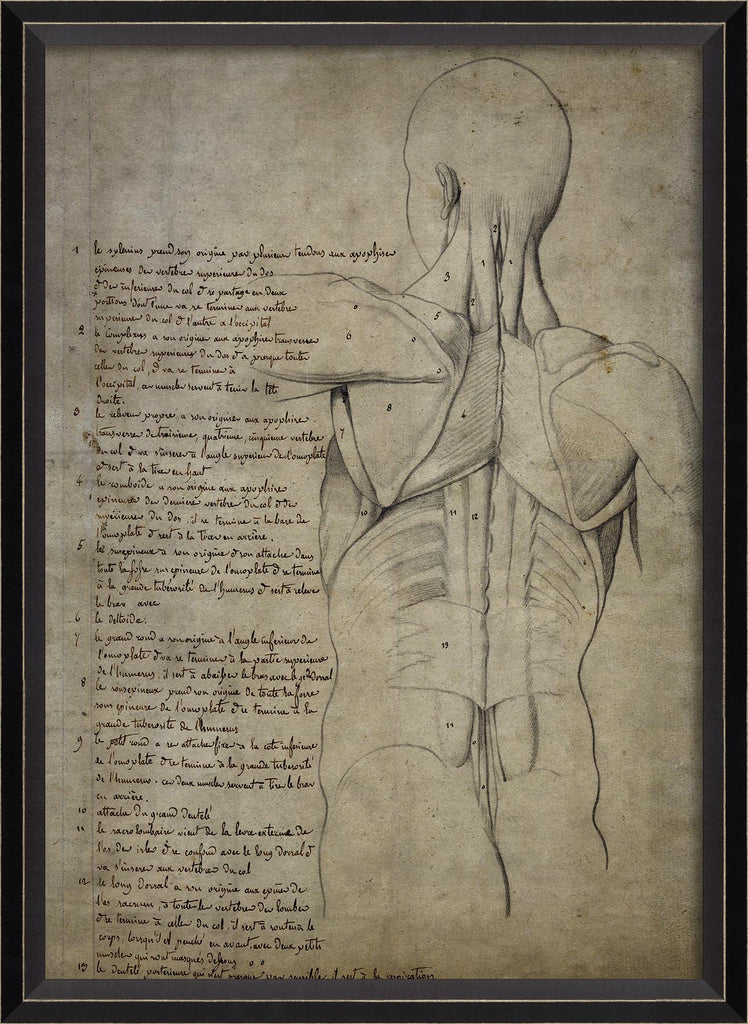 1 le splenius prend son origine par plusieurs tendons aux apophise
epineuses des vertebre superieure du dos
& des inferieure du col & se partage en deux
portions dont l'une va se termine aux vertebre
superieure du col & l'autre a l'occipital
2 le complexus a son origine aux apophise transverse
des vertebre superieures du dos & a presque toute
celle du col, & va se termine à
l'occipital, ces muscles servent à tenir la tête
droite.
3 le releveur propre a son origine aux apophise
transverse de troisieme, quatrieme, cinquieme vertebre
du col & va s'inserer à l'angle superieur de l'omoplate
& sert à la tirer en haut
4 le romboide a son origine aux apophise
epineuse des derniere vertebre du col & de
superieure du dos, il se termine à la base de
l'omoplate & sert à la tirer en arriere.
5 le surepineux a son origine & son attache dans
toute la fosse sur epineuse de l'omoplate & se termine
à la grande tubérosité de l'humerus & sert à releve
le bras avec
6 le deltoide.
7 le grand rond a son origine à l'angle inferieur de
l'omoplate & va se termine à la partie superieure
de l'humerus, il sert à abaisser le bras avec le gd Dorsal
8 le sousepineux prend son origine de toute la fosse
sous epineuse de l'omoplate & se termine à la
grande tuberosité de l'humerus
9 le petit rond a se attache fixe à la cote inferieure
de l'omoplate & se termine à la grande tuberosité
de l'humerus. ces deux muscles servent à tire le bras
en arriere.
10 attache du grand dentelé
11 le sacrolombaire vient de la levre externe de
l'os des isles & se confond avec le long dorsal &
va s'inserer aux vertebre du col
12 le long dorsal a son origine aux epine de
l'os sacrum, à toute les vertebre des lombes
& se termine à celles du col, il sert à soutenir le
corps, lorsqu'il est penché en avant, avec deux petits
muscles qui sont masqués dessous o o
13 le dentelé posterieure qui n'est presque pas sensible il sert à la respiration
2
3 1 1
2
6 o 5
o
o
8 4
7
10 11 12
13
11
o
o